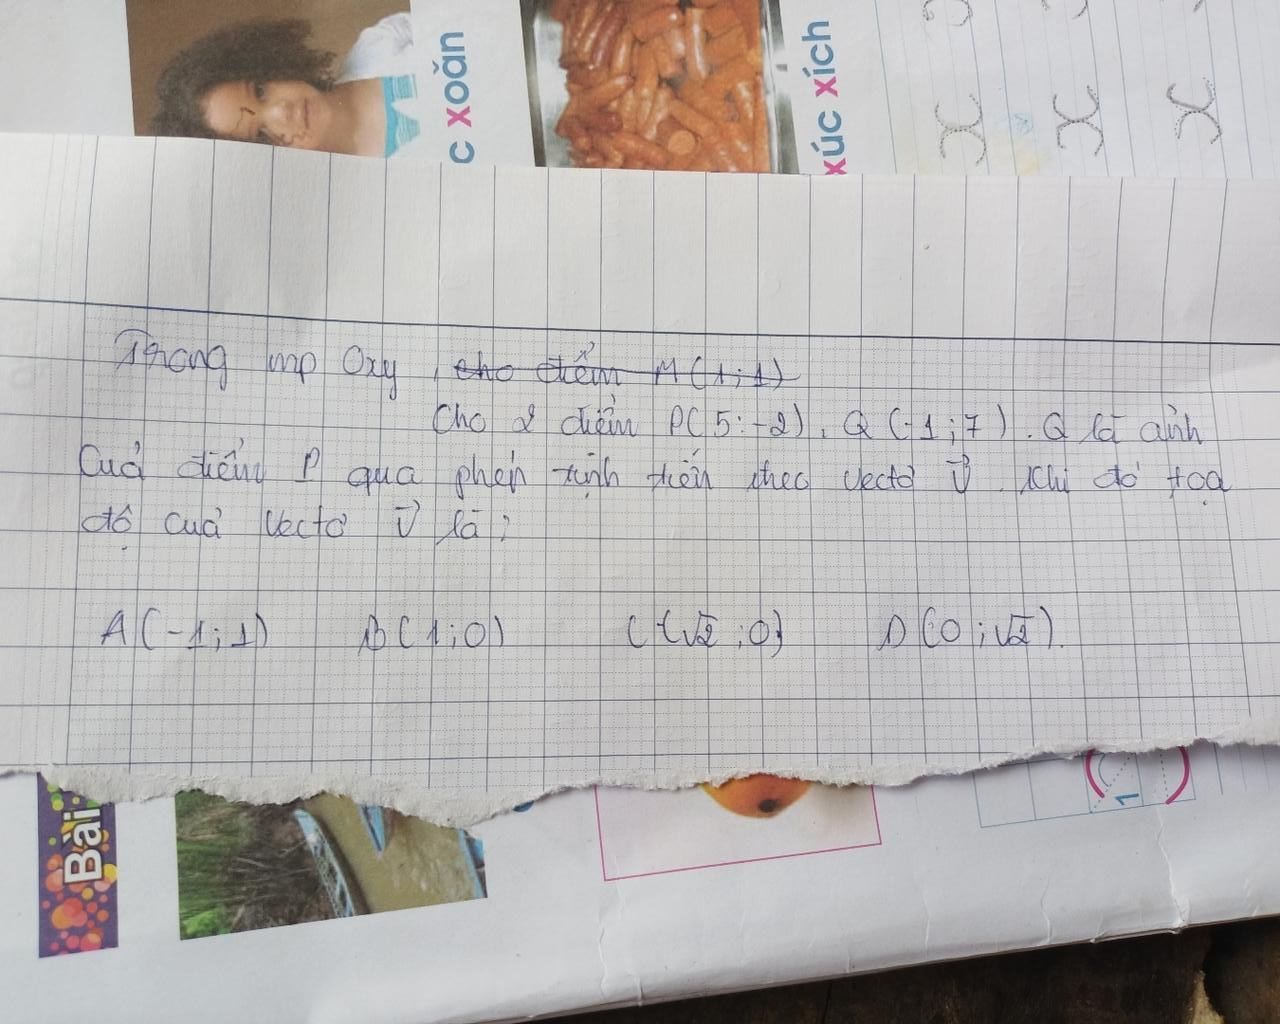 c xoăn
xúc xích
x x x
Trong mp Oxy, cho điểm M(1;1)
Cho 2 điểm P(5:-2), Q(-1;7). Q là ảnh
Của điểm P qua phép tịnh tiến theo vectơ v⃗. Khi đó toạ
độ của vectơ v⃗ là;
A(-1;1) B(1;0) C(√2;0) D(0;√2).
Bài
1